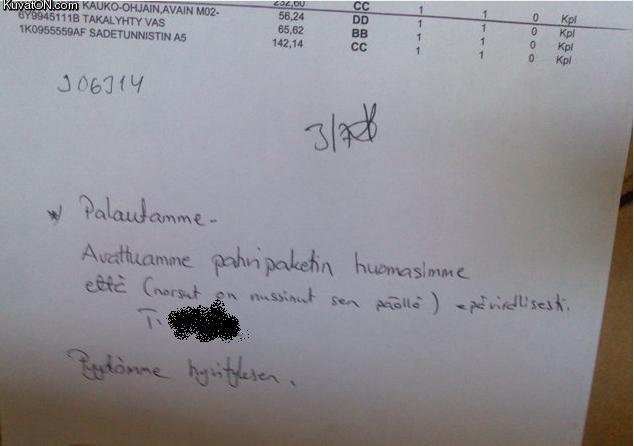 KuvatON.com
KAUKO-OHJAIN,AVAIN M02- 232,60 CC 1 1 0 Kpl
6Y9945111B TAKALYHTY VAS 56,24 DD 1 1 0 Kpl
1K0955559AF SADETUNNISTIN A5 65,62 BB 1 1 0 Kpl
142,14 CC 1 1 0 Kpl
J06314
* Palautamme-
Avattuamme pahvipaketin huomasimme
että (norsut on nussinut sen päällä) epävirallisesti.
T:
Pyydämme hyvityksen.